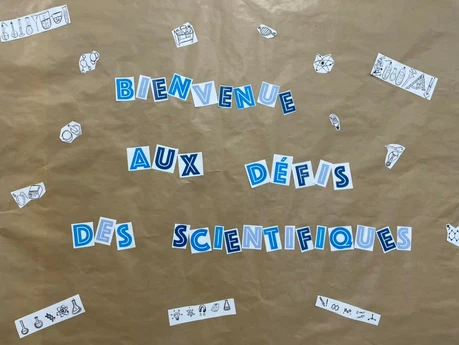 BIENVENUE
AUX DÉFIS
DES SCIENTIFIQUES